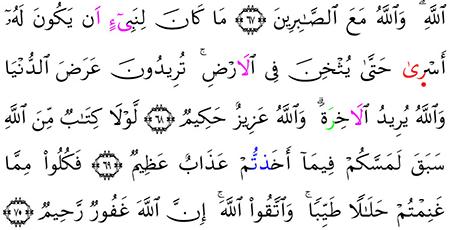 اللَّهِ ۗ وَٱللَّهُ مَعَ ٱلصَّـٰبِرِينَ ٦٧ مَا كَانَ لِنَبِىٓءٍ اَن يَكُونَ لَهُۥٓ
أَسْرىٰ حَتَّىٰ يُثْخِنَ فِى ٱلَارْضِ ۚ تُرِيدُونَ عَرَضَ ٱلدُّنْيَا
وَٱللَّهُ يُرِيدُ ٱلَاخِرَةَ ۗ وَٱللَّهُ عَزِيزٌ حَكِيمٌ ٦٨ لَّوْلَا كِتَـٰبٌ مِّنَ ٱللَّهِ
سَبَقَ لَمَسَّكُمْ فِيمَآ أَخَذتُّمْ عَذَابٌ عَظِيمٌ ٦٩ فَكُلُوا۟ مِمَّا
غَنِمْتُمْ حَلَـٰلًا طَيِّبًا ۚ وَٱتَّقُوا۟ ٱللَّهَ ۚ إِنَّ ٱللَّهَ غَفُورٌ رَّحِيمٌ ٧٠